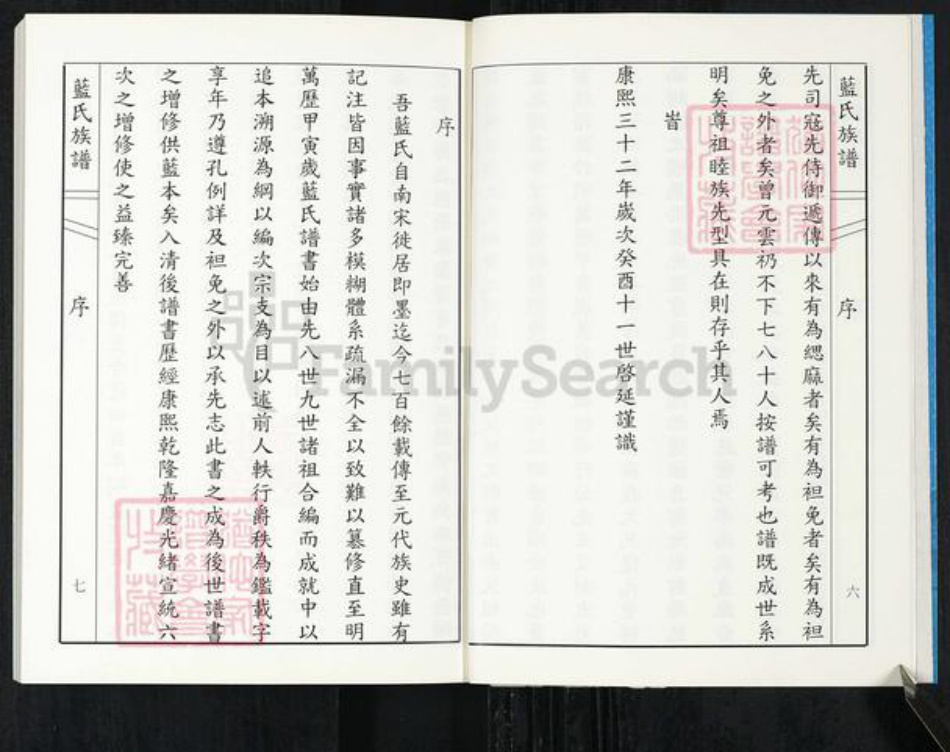 藍氏族譜
序
六
先司寇先侍御遞傳以來有為緦麻者矣有為袒免者矣有為袒
免之外者矣曾元雲礽不下七八十人按譜可考也譜既成世系
明矣尊祖睦族先型具在則存乎其人焉
旹
康熙三十二年歲次癸酉十一世啓延謹識
序
吾藍氏自南宋徙居即墨迄今七百餘載傳至元代族史雖有
記注皆因事實諸多模糊體系疏漏不全以致難以纂修直至明
萬歷甲寅歲藍氏譜書始由先八世九世諸祖合編而成就中以
追本溯源為綱以編次宗支為目以述前人軼行爵秩為鑑載字
享年乃遵孔例詳及袒免之外以承先志此書之成為後世譜書
之增修供藍本矣入清後譜書歷經康熙乾隆嘉慶光緒宣統六
次之增修使之益臻完善
藍氏族譜
序
七
FamilySearch